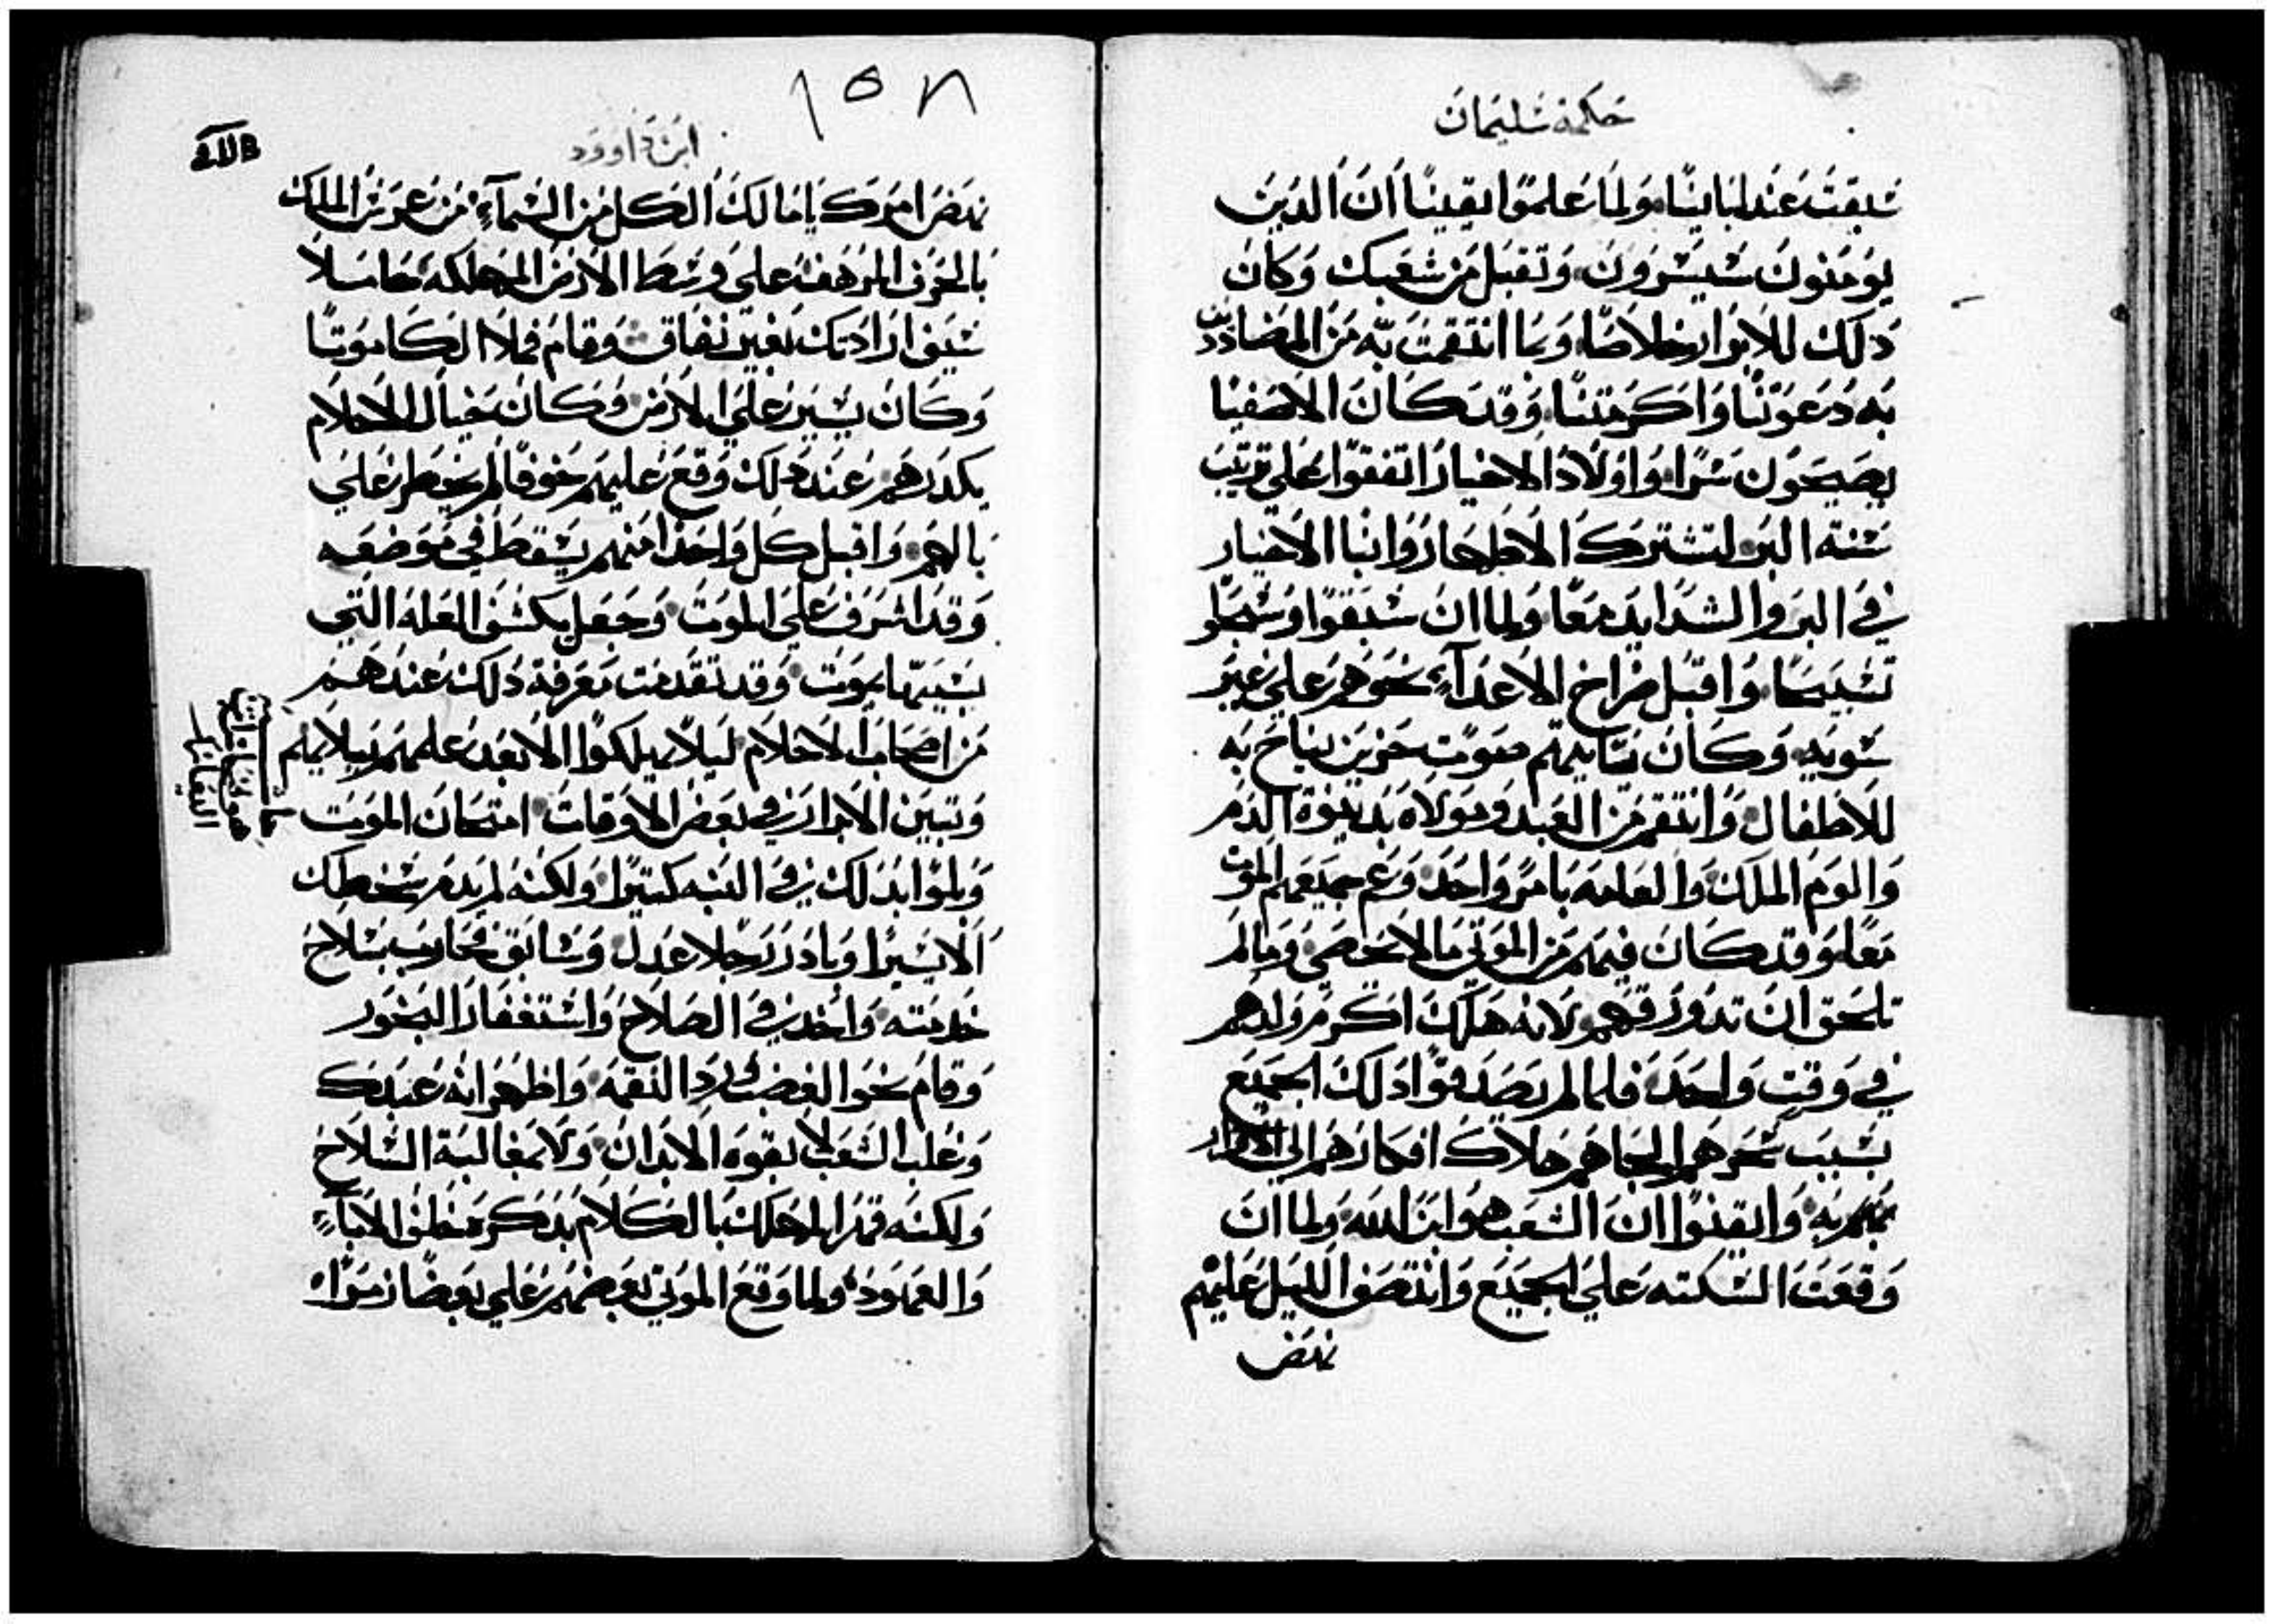 حكمة سليمان
سبقت عند ابائنا ولما علموا يقينًا ان الدين
يومنون سيسرون وتقبل من شعبك وكان
دلك للابرار خلاصًا وبما انتقمت به من المضاددين
به دعوتنا واكرمتنا وقد كان الاصفيا
يصيحون سرًا واولاد الاخيار اتفقوا على ترتيب
سنة البر لتشترك الاطهار وانبا الاخيار
في البر والشدايد معًا ولما ان سبقوا وسبحلو
تسبيحًا واقبل صراخ الاعدآء نحوهم على غير
سويه وكان ياتيهم صوت حزين يناح به
للاطفال وانتقم من العبد ومولاه بدينوة الدم
والوم الملك والعامه بامر واحد وعم جميعهم الموت
معًا وقد كان فيهم من الموتى ما لا يحصى وما لم
تلحق ان تدور قهم لانه هلك اكرم ولدهم
في وقت واحد فلما لم يصدقوا دلك الجميع
بسبب سحرهم الجاهم هلاك افكارهم الى الاقرار
منهم به وايقنوا ان الشعب هو ابن الله ولما ان
وقعت السكته على الجميع وانتصف الليل عليهم
نهض
١٥٨
ابن داوود
نهض امرك يا مالك الكل من السمآء من عرش الملك
بالحرف المرهفه على وسط الارض المهلكه حاملًا
سيف ارادتك بغير نفاق وقام فملا الكل موتًا
وكان يسير على الارض وكان خيال الاحلام
يكدرهم عند دلك وقع عليهم خوفًا لم يخطر على
بالهم واقبل كل واحدًا منهم يسقط في موضعه
وقد اشرف على الموت وجعل يكشف العله التي
بسببها يموت وقد تقدمت معرفة دلك عندهم
من اصحاب الاحلام ليلًا يهلكوا الا بعد علمهم ببلايهم
وتبين الابرار في بعض الاوقات امتحان الموت
وبلوا بدلك في التيه كتيرًا ولكنه لم يدم سخطك
الا يسيرًا وبادر رجلا عدل وسابق محارب بسلاح
خدمته واخد في الصلاح واستغفار البخور
وقام نحو الغضب ورد النقمه واظهر انه عبدك
وغلب الشعب لا بقوة الابدان ولا بمغالبة السلاح
ولكنه قمر المهلك بالكلام بدكر حلف الابآء
والعهود ولما وقع الموتى بعضهم على بعضًا زمرًا